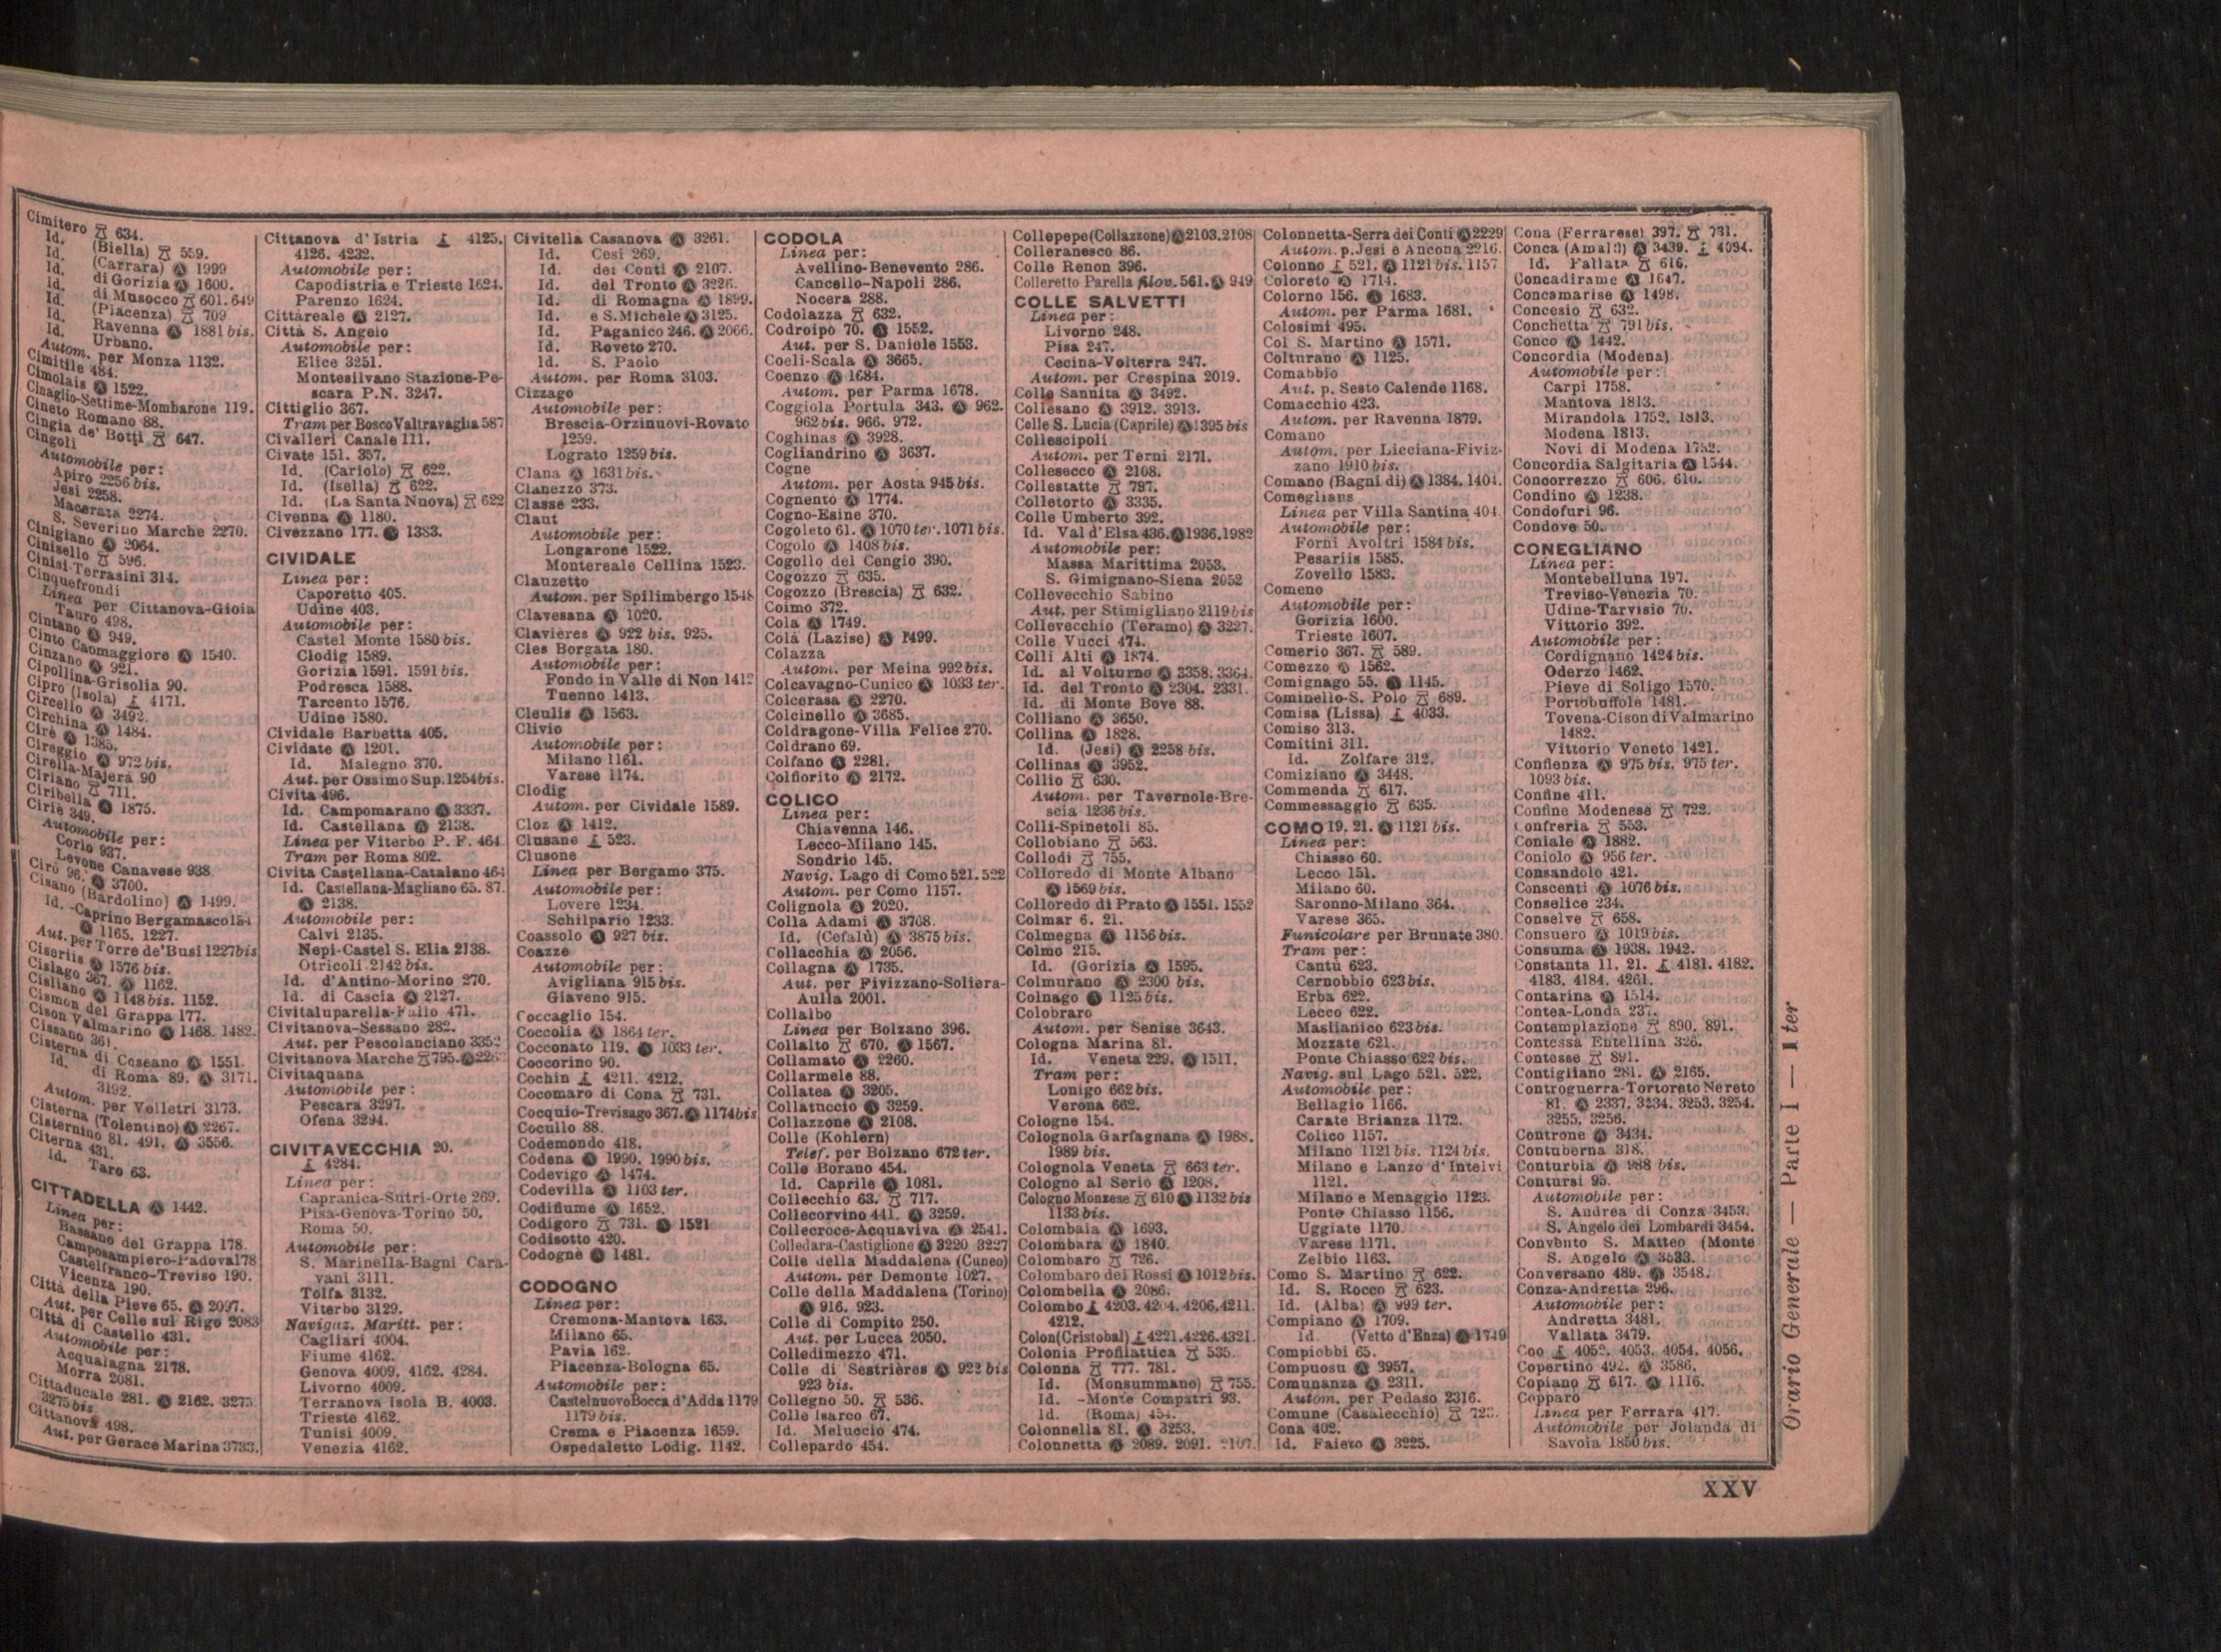 Cimitero 634.
Id. (Biella) 559.
Id. (Carrara) Ⓐ 1999
Id. di Gorizia Ⓐ 1600.
Id. di Musocco 601. 649
Id. (Piacenza) 709
Id. Ravenna Ⓐ 1881 bis.
Id. Urbano.
Autom. per Monza 1132.
Cimitile 484.
Cimolais Ⓐ 1522.
Cinaglio-Settime-Mombarone 119.
Cineto Romano 88.
Cingia de' Botti 647.
Cingoli
Automobile per:
Apiro 2256 bis.
Jesi 2258.
Macerata 2274.
S. Severino Marche 2270.
Cinigiano Ⓐ 2064.
Cinisello 596.
Cinisi-Terrasini 314.
Cinquefrondi
Linea per Cittanova-Gioia
Tauro 498.
Cintano Ⓐ 949.
Cinto Caomaggiore Ⓐ 1540.
Cinzano Ⓐ 921.
Cipollina-Grisolia 90.
Cipro (Isola) 4171.
Circello Ⓐ 3492.
Circhina Ⓐ 1484.
Cirè Ⓐ 1385.
Cireggio Ⓐ 972 bis.
Cirella-Majerà 90
Ciriano 711.
Ciribella Ⓐ 1875.
Ciriè 349.
Automobile per:
Corio 937.
Levone Canavese 938
Cirò 96. Ⓐ 3700.
Cisano (Bardolino) Ⓐ 1499.
Id. -Caprino Bergamasco 154
Ⓐ 1165. 1227.
Aut. per Torre de' Busi 1227 bis
Ciseriis Ⓐ 1576 bis.
Cislago 367. Ⓐ 1162.
Cisliano Ⓐ 1148 bis. 1152.
Cismon del Grappa 177.
Cison Valmarino Ⓐ 1468. 1482.
Cissano 361.
Cisterna di Coseano Ⓐ 1551.
Id. di Roma 89. Ⓐ 3171.
3192.
Autom. per Velletri 3173.
Cisterna (Tolentino) Ⓐ 2267.
Cisternino 81. 491. Ⓐ 3556.
Citerna 431.
Id. Taro 63.
CITTADELLA Ⓐ 1442.
Linea per:
Bassano del Grappa 178.
Camposampiero-Padova 178
Castelfranco-Treviso 190.
Vicenza 190.
Città della Pieve 65. Ⓐ 2097.
Aut. per Celle sul Rigo 2083
Città di Castello 431.
Automobile per:
Acqualagna 2178.
Morra 2081.
Cittaducale 281. Ⓐ 2162. 3275.
3275 bis
Cittanova 498.
Aut. per Gerace Marina 3733.
Cittanova d'Istria 4125.
4126. 4232.
Automobile per:
Capodistria e Trieste 1624.
Parenzo 1624.
Cittàreale Ⓐ 2127.
Città S. Angelo
Automobile per:
Elice 3251.
Montesilvano Stazione-Pe-
scara P.N. 3247.
Cittiglio 367.
Tram per Bosco Valtravaglia 587
Civalleri Canale 111.
Civate 151. 357.
Id. (Cariolo) 622.
Id. (Isella) 622.
Id. (La Santa Nuova) 622
Civenna Ⓐ 1180.
Civezzano 177. Ⓐ 1383.
CIVIDALE
Linea per:
Caporetto 405.
Udine 403.
Automobile per:
Castel Monte 1580 bis.
Clodig 1589.
Gorizia 1591. 1591 bis.
Podresca 1588.
Tarcento 1576.
Udine 1580.
Cividale Barbetta 405.
Cividate Ⓐ 1201.
Id. Malegno 370.
Aut. per Ossimo Sup. 1254 bis.
Civita 496.
Id. Campomarano Ⓐ 3337.
Id. Castellana Ⓐ 2138.
Linea per Viterbo P. F. 464
Tram per Roma 802.
Civita Castellana-Catalano 464
Id. Castellana-Magliano 65. 87.
Ⓐ 2138.
Automobile per:
Calvi 2135.
Nepi-Castel S. Elia 2138.
Otricoli 2142 bis.
Id. d'Antino-Morino 270.
Id. di Cascia Ⓐ 2127.
Civitaluparella-Fallo 471.
Civitanova-Sessano 282.
Aut. per Pescolanciano 3352
Civitanova Marche 795. Ⓐ 2262
Civitaquana
Automobile per:
Pescara 3297.
Ofena 3294.
CIVITAVECCHIA 20.
4284.
Linea per:
Capranica-Sutri-Orte 269.
Pisa-Genova-Torino 50.
Roma 50.
Automobile per:
S. Marinella-Bagni Cara-
vani 3111.
Tolfa 3132.
Viterbo 3129.
Navigaz. Maritt. per:
Cagliari 4004.
Fiume 4162.
Genova 4009. 4162. 4284.
Livorno 4009.
Terranova Isola B. 4003.
Trieste 4162.
Tunisi 4009.
Venezia 4162.
Civitella Casanova Ⓐ 3261.
Id. Cesi 269.
Id. dei Conti Ⓐ 2107.
Id. del Tronto Ⓐ 3226.
Id. di Romagna Ⓐ 1899.
Id. e S. Michele Ⓐ 3125.
Id. Paganico 246. Ⓐ 2066.
Id. Roveto 270.
Id. S. Paolo
Autom. per Roma 3103.
Cizzago
Automobile per:
Brescia-Orzinuovi-Rovato
1259.
Lograto 1259 bis.
Clana Ⓐ 1631 bis.
Clanezzo 373.
Classe 233.
Claut
Automobile per:
Longarone 1522.
Montereale Cellina 1523.
Clauzetto
Autom. per Spilimbergo 1548
Clavesana Ⓐ 1020.
Clavières Ⓐ 922 bis. 925.
Cles Borgata 180.
Automobile per:
Fondo in Valle di Non 1412
Tuenno 1413.
Cleulis Ⓐ 1563.
Clivio
Automobile per:
Milano 1161.
Varese 1174.
Clodig
Autom. per Cividale 1589.
Cloz Ⓐ 1412.
Clusane 523.
Clusone
Linea per Bergamo 375.
Automobile per:
Lovere 1234.
Schilpario 1233.
Coassolo Ⓐ 927 bis.
Coazze
Automobile per:
Avigliana 915 bis.
Giaveno 915.
Coccaglio 154.
Coccolia Ⓐ 1864 ter.
Cocconato 119. Ⓐ 1033 ter.
Coccorino 90.
Cochin 4211. 4212.
Cocomaro di Cona 731.
Cocquio-Trevisago 367. Ⓐ 1174 bis
Cocullo 88.
Codemondo 418.
Codena Ⓐ 1990. 1990 bis.
Codevigo Ⓐ 1474.
Codevilla Ⓐ 1103 ter.
Codifiume Ⓐ 1652.
Codigoro 731. Ⓐ 1521
Codisotto 420.
Codognè Ⓐ 1481.
CODOGNO
Linea per:
Cremona-Mantova 163.
Milano 65.
Pavia 162.
Piacenza-Bologna 65.
Automobile per:
Castelnuovo Bocca d'Adda 1179
1179 bis.
Crema e Piacenza 1659.
Ospedaletto Lodig. 1142.
CODOLA
Linea per:
Avellino-Benevento 286.
Cancello-Napoli 286.
Nocera 288.
Codolazza 632.
Codroipo 70. Ⓐ 1552.
Aut. per S. Daniele 1553.
Coeli-Scala Ⓐ 3665.
Coenzo Ⓐ 1684.
Autom. per Parma 1678.
Coggiola Portula 343. Ⓐ 962.
962 bis. 966. 972.
Coghinas Ⓐ 3928.
Cogliandrino Ⓐ 3637.
Cogne
Autom. per Aosta 945 bis.
Cognento Ⓐ 1774.
Cogno-Esine 370.
Cogoleto 61. Ⓐ 1070 ter. 1071 bis.
Cogolo Ⓐ 1408 bis.
Cogollo del Cengio 390.
Cogozzo 635.
Cogozzo (Brescia) 632.
Coimo 372.
Cola Ⓐ 1749.
Colà (Lazise) Ⓐ 1499.
Colazza
Autom. per Meina 992 bis.
Colcavagno-Cunico Ⓐ 1033 ter.
Colcerasa Ⓐ 2270.
Colcinello Ⓐ 3685.
Coldragone-Villa Felice 270.
Coldrano 69.
Colfano Ⓐ 2281.
Colfiorito Ⓐ 2172.
COLICO
Linea per:
Chiavenna 146.
Lecco-Milano 145.
Sondrio 145.
Navig. Lago di Como 521. 522
Autom. per Como 1157.
Colignola Ⓐ 2020.
Colla Adami Ⓐ 3708.
Id. (Cefalù) Ⓐ 3875 bis.
Collacchia Ⓐ 2056.
Collagna Ⓐ 1735.
Aut. per Fivizzano-Soliera-
Aulla 2001.
Collalbo
Linea per Bolzano 396.
Collalto 670. Ⓐ 1567.
Collamato Ⓐ 2260.
Collarmele 88.
Collatea Ⓐ 3205.
Collatuccio Ⓐ 3259.
Collazzone Ⓐ 2108.
Colle (Kohlern)
Telef. per Bolzano 672 ter.
Colle Borano 454.
Id. Caprile Ⓐ 1081.
Collecchio 63. 717.
Collecorvino 441. Ⓐ 3259.
Collecroce-Acquaviva Ⓐ 2541.
Colledara-Castiglione Ⓐ 3220. 3227
Colle della Maddalena (Cuneo)
Autom. per Demonte 1027.
Colle della Maddalena (Torino)
Ⓐ 916. 923.
Colle di Compito 250.
Aut. per Lucca 2050.
Colledimezzo 471.
Colle di Sestrières Ⓐ 922 bis
923 bis.
Collegno 50. 536.
Colle Isarco 67.
Id. Meluccio 474.
Collepardo 454.
Collepepe (Collazzone) Ⓐ 2103. 2108
Colleranesco 86.
Colle Renon 396.
Colleretto Parella filov. 561. Ⓐ 949
COLLE SALVETTI
Linea per:
Livorno 248.
Pisa 247.
Cecina-Volterra 247.
Autom. per Crespina 2019.
Colle Sannita Ⓐ 3492.
Collesano Ⓐ 3912. 3913.
Colle S. Lucia (Caprile) Ⓐ 1395 bis
Collescipoli
Autom. per Terni 2171.
Collesecco Ⓐ 2108.
Collestatte 797.
Colletorto Ⓐ 3335.
Colle Umberto 392.
Id. Val d'Elsa 436. Ⓐ 1936. 1982
Automobile per:
Massa Marittima 2053.
S. Gimignano-Siena 2052
Collevecchio Sabino
Aut. per Stimigliano 2119 bis
Collevecchio (Teramo) Ⓐ 3227.
Colle Vucci 474.
Colli Alti Ⓐ 1874.
Id. al Volturno Ⓐ 3358. 3364.
Id. del Tronto Ⓐ 2304. 2331.
Id. di Monte Bove 88.
Colliano Ⓐ 3650.
Collina Ⓐ 1828.
Id. (Jesi) Ⓐ 2258 bis.
Collinas Ⓐ 3952.
Collio 630.
Autom. per Tavernole-Bre-
scia 1236 bis.
Colli-Spinetoli 85.
Collobiano 563.
Collodi 755.
Colloredo di Monte Albano
Ⓐ 1569 bis.
Colloredo di Prato Ⓐ 1551. 1552
Colmar 6. 21.
Colmegna Ⓐ 1156 bis.
Colmo 215.
Id. (Gorizia Ⓐ 1595.
Colmurano Ⓐ 2300 bis.
Colnago Ⓐ 1125 bis.
Colobraro
Autom. per Senise 3643.
Cologna Marina 81.
Id. Veneta 229. Ⓐ 1511.
Tram per:
Lonigo 662 bis.
Verona 662.
Cologne 154.
Colognola Garfagnana Ⓐ 1988.
1989 bis.
Colognola Veneta 663 ter.
Cologno al Serio Ⓐ 1208.
Cologno Monzese 610 Ⓐ 1132 bis
1133 bis.
Colombaia Ⓐ 1693.
Colombara Ⓐ 1840.
Colombaro 726.
Colombaro dei Rossi Ⓐ 1012 bis.
Colombella Ⓐ 2086.
Colombo 4203. 4204. 4206. 4211.
4212.
Colon (Cristobal) 4221. 4226. 4321.
Colonia Profilattica 535.
Colonna 777. 781.
Id. (Monsummano) 755.
Id. -Monte Compatri 93.
Id. (Roma) 454.
Colonnella 81. Ⓐ 3253.
Colonnetta Ⓐ 2089. 2091. 2107.
Colonnetta-Serra dei Conti Ⓐ 2229
Autom. p. Jesi e Ancona 2216.
Colonno 521. Ⓐ 1121 bis. 1157
Coloreto Ⓐ 1714.
Colorno 156. Ⓐ 1683.
Autom. per Parma 1681.
Colosimi 495.
Col S. Martino Ⓐ 1571.
Colturano Ⓐ 1125.
Comabbio
Aut. p. Sesto Calende 1168.
Comacchio 423.
Autom. per Ravenna 1879.
Comano
Autom. per Licciana-Fiviz-
zano 1910 bis.
Comano (Bagni di) Ⓐ 1384. 1404.
Comeglians
Linea per Villa Santina 404
Automobile per:
Forni Avoltri 1584 bis.
Pesariis 1585.
Zovello 1583.
Comeno
Automobile per:
Gorizia 1600.
Trieste 1607.
Comerio 367. 589.
Comezzo Ⓐ 1562.
Comignago 55. Ⓐ 1145.
Cominello-S. Polo 689.
Comisa (Lissa) 4033.
Comiso 313.
Comitini 311.
Id. Zolfare 312.
Comiziano Ⓐ 3448.
Commenda 617.
Commessaggio 635.
COMO 19. 21. Ⓐ 1121 bis.
Linea per:
Chiasso 60.
Lecco 151.
Milano 60.
Saronno-Milano 364.
Varese 365.
Funicolare per Brunate 380.
Tram per:
Cantù 623.
Cernobbio 623 bis.
Erba 622.
Lecco 622.
Maslianico 623 bis.
Mozzate 621.
Ponte Chiasso 622 bis.
Navig. sul Lago 521. 522.
Automobile per:
Bellagio 1166.
Carate Brianza 1172.
Colico 1157.
Milano 1121 bis. 1124 bis.
Milano e Lanzo d'Intelvi
1121.
Milano e Menaggio 1123.
Ponte Chiasso 1156.
Uggiate 1170.
Varese 1171.
Zelbio 1163.
Como S. Martino 622.
Id. S. Rocco 623.
Id. (Alba) Ⓐ 999 ter.
Compiano Ⓐ 1709.
Id. (Vetto d'Enza) Ⓐ 1749
Compiobbi 65.
Compuosu Ⓐ 3957.
Comunanza Ⓐ 2311.
Autom. per Pedaso 2316.
Comune (Casalecchio) 723.
Cona 402.
Id. Faieto Ⓐ 3225.
Cona (Ferrarese) 397. 731.
Conca (Amalfi) Ⓐ 3439. 4094.
Id. Fallata 616.
Concadirame Ⓐ 1647.
Concamarise Ⓐ 1498.
Concesio 632.
Conchetta 791 bis.
Conco Ⓐ 1442.
Concordia (Modena)
Automobile per:
Carpi 1758.
Mantova 1813.
Mirandola 1752. 1813.
Modena 1813.
Novi di Modena 1752.
Concordia Salgitaria Ⓐ 1544.
Concorrezzo 606. 610.
Condino Ⓐ 1238.
Condofuri 96.
Condove 50.
CONEGLIANO
Linea per:
Montebelluna 197.
Treviso-Venezia 70.
Udine-Tarvisio 70.
Vittorio 392.
Automobile per:
Cordignano 1424 bis.
Oderzo 1462.
Pieve di Soligo 1570.
Portobuffole 1481.
Tovena-Cison di Valmarino
1482.
Vittorio Veneto 1421.
Confienza Ⓐ 975 bis. 975 ter.
1093 bis.
Confine 411.
Confine Modenese 722.
Confreria 553.
Coniale Ⓐ 1882.
Coniolo Ⓐ 956 ter.
Consandolo 421.
Conscenti Ⓐ 1076 bis.
Conselice 234.
Conselve 658.
Consuero Ⓐ 1019 bis.
Consuma Ⓐ 1938. 1942.
Constanta 11. 21. 4181. 4182.
4183. 4184. 4261.
Contarina Ⓐ 1514.
Contea-Londa 237.
Contemplazione 890. 891.
Contessa Entellina 326.
Contesse 891.
Contigliano 281. Ⓐ 2165.
Controguerra-Tortoreto Nereto
81. Ⓐ 2337. 3234. 3253. 3254.
3255. 3256.
Controne Ⓐ 3434.
Contuberna 318.
Conturbia Ⓐ 988 bis.
Contursi 95.
Automobile per:
S. Andrea di Conza 3453.
S. Angelo dei Lombardi 3454.
Convento S. Matteo (Monte
S. Angelo Ⓐ 3533.
Conversano 489. Ⓐ 3548.
Conza-Andretta 296.
Automobile per:
Andretta 3481.
Vallata 3479.
Coo 4052. 4053. 4054. 4056.
Copertino 492. Ⓐ 3586.
Copiano 617. Ⓐ 1116.
Copparo
Linea per Ferrara 417.
Automobile per Jolanda di
Savoia 1850 bis.
Orario Generale — Parte I — I ter
XXV